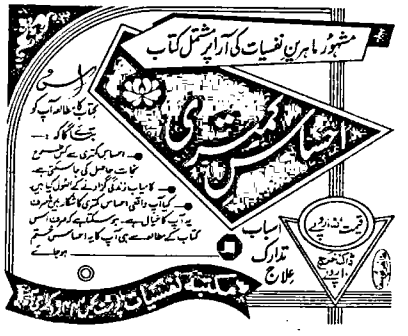 مشہور ماہرینِ نفسیات کی آرا پر مشتمل کتاب
احساسِ کمتری
اس
کتاب کا مطالعہ آپ کو
بتائے گا کہ :—
احساسِ کمتری سے کس طرح
نجات حاصل کی جا سکتی ہے
کامیاب زندگی گزارنے کے اصول کیا ہیں
کیا آپ واقعی احساسِ کمتری کا شکار ہیں یا صرف
یہ آپ کا خیال ہے۔ ہو سکتا ہے کہ صرف اس
کتاب کے مطالعے سے ہی آپ کا یہ احساس ختم
ہو جائے
اسباب
تدارک
علاج
قیمت
روپے
ڈاک خرچ
روپے
مکتبہ نفسیات